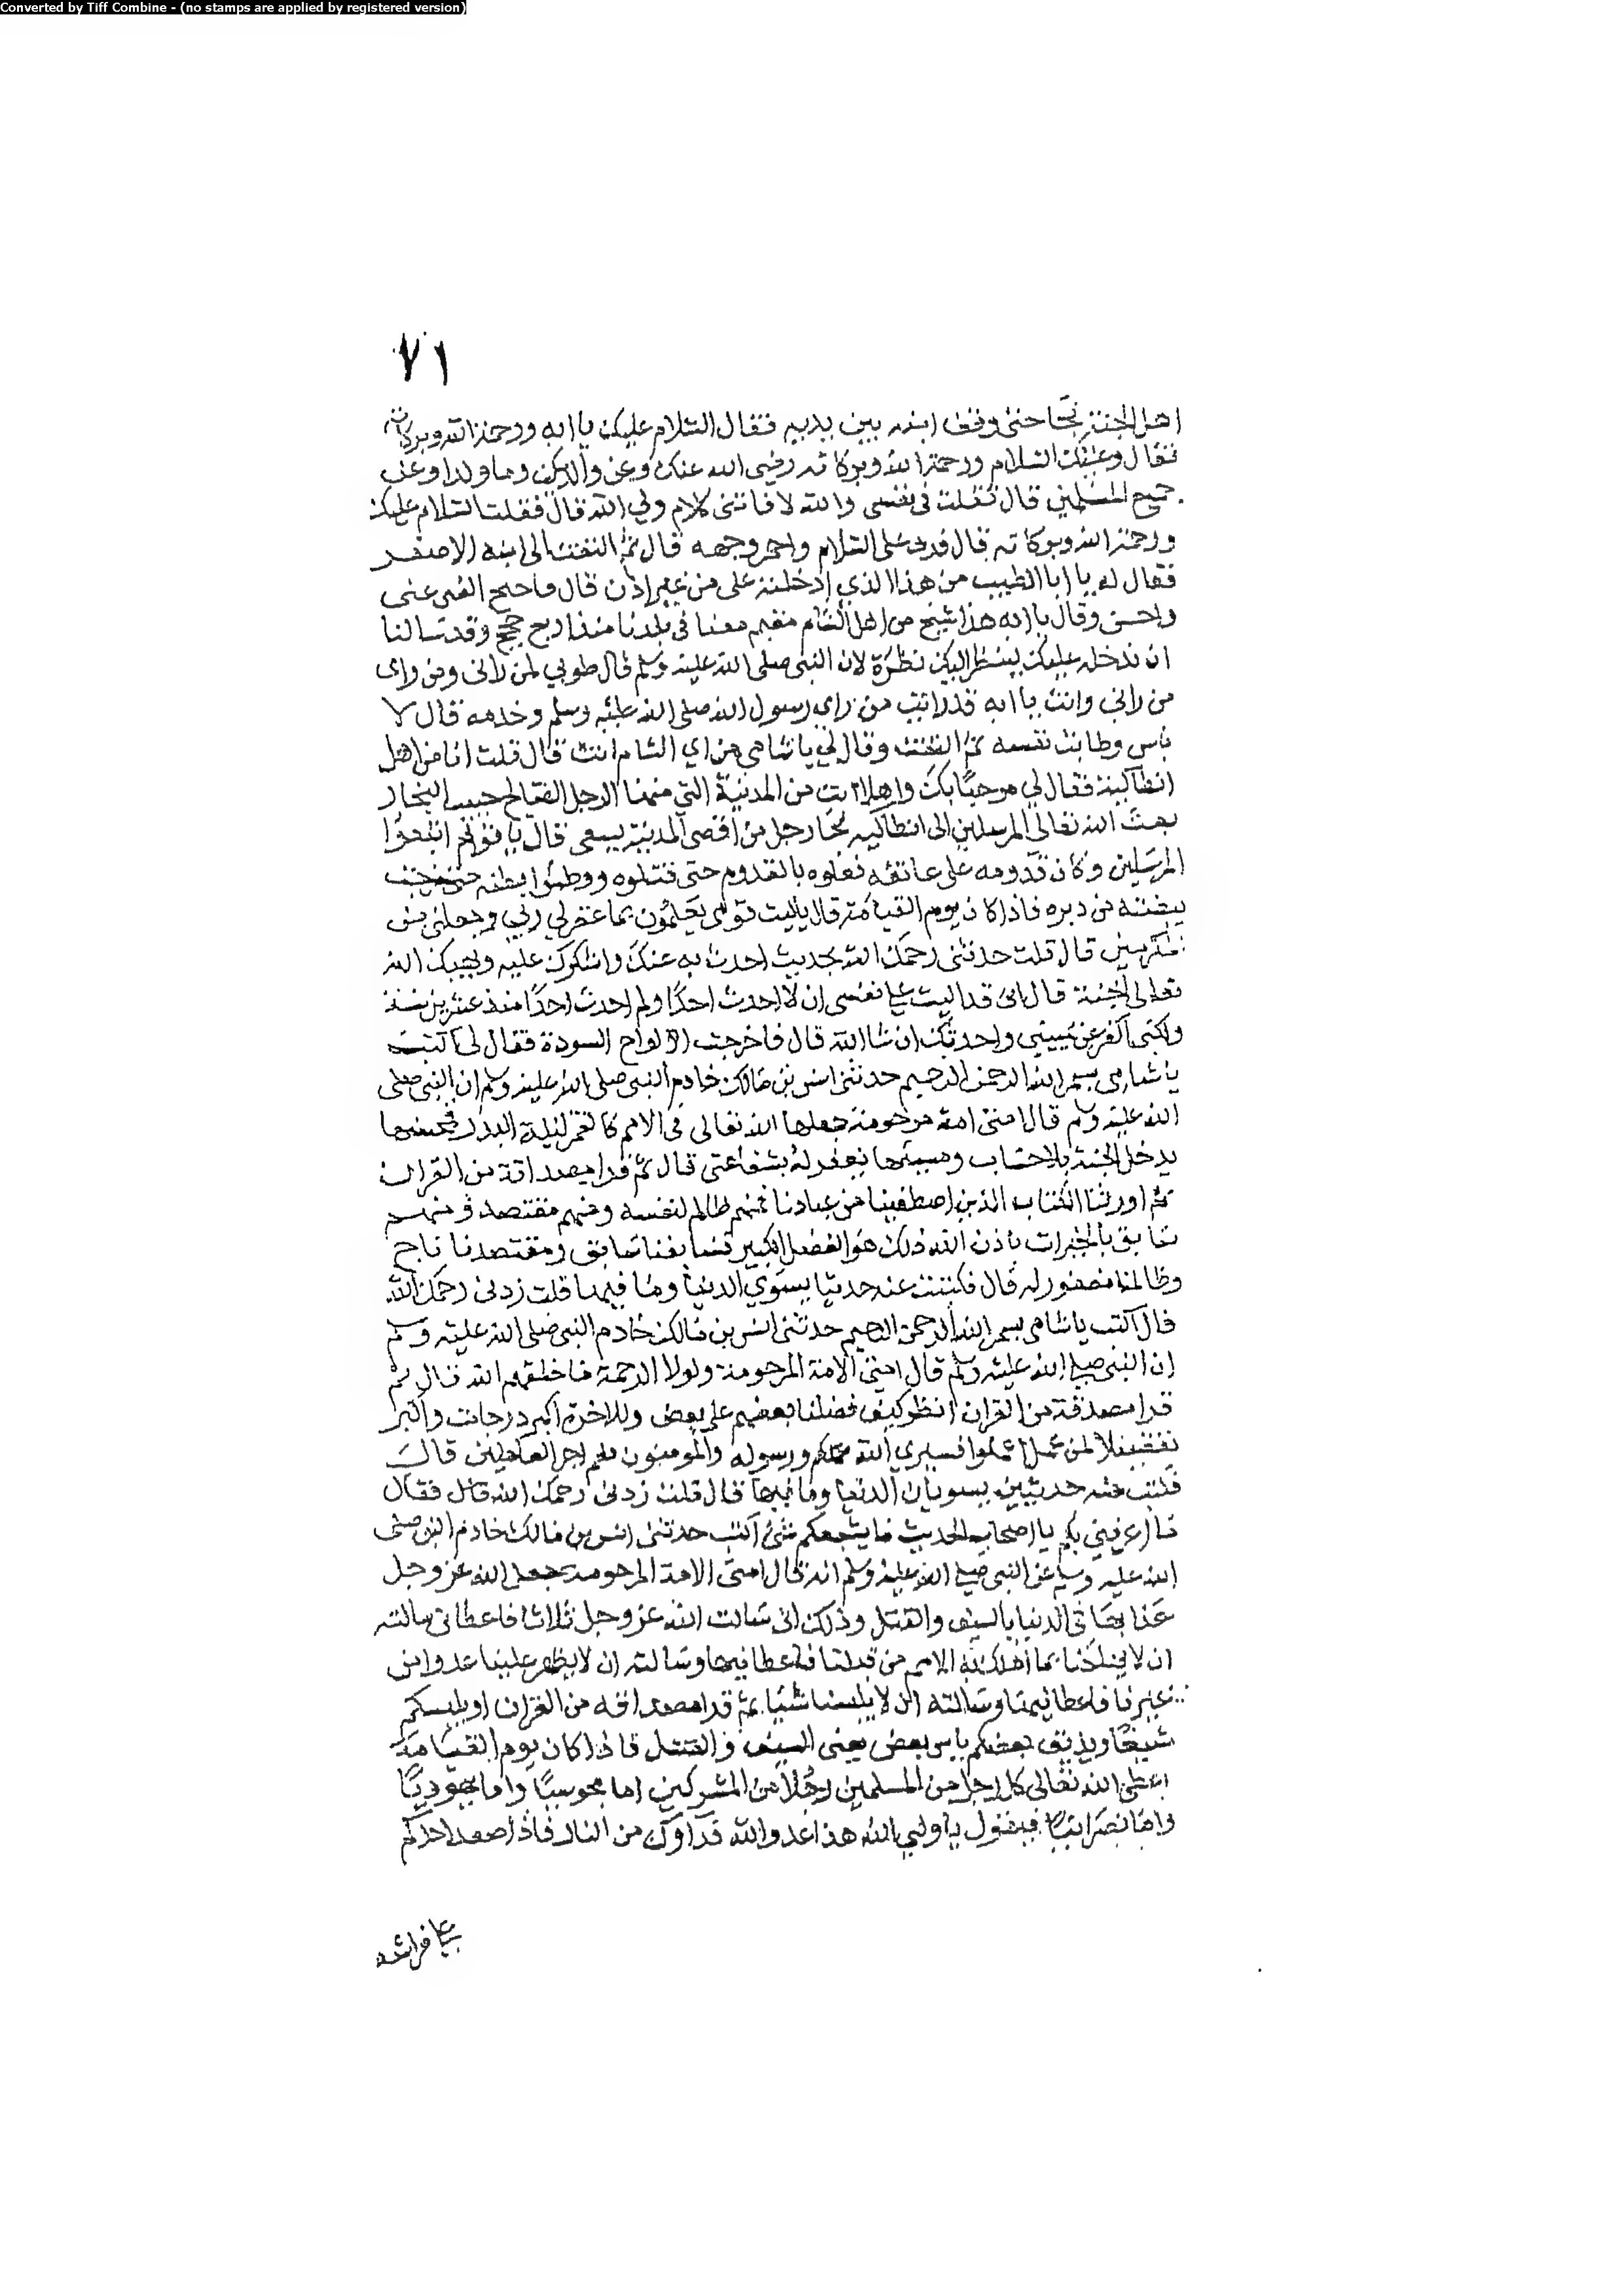 Converted by Tiff Combine - (no stamps are applied by registered version)
٧١
اهل الجنة فجا حتى وقف ابنه بين يديه فقال السلام عليك يا ابه ورحمة الله وبركاته
فقال وعليك السلام ورحمة الله وبركاته رضي الله عنك وعن والديك وما ولدا وعن
جميع المسلمين قال فقلت في نفسي والله لا فاتني كلام ولي الله قال فقلت السلام عليك
ورحمة الله وبركاته قال فرد على السلام واحمر وجهه قال ثم التفت الى ابنه الاصغر
فقال له يا ابا الطيب من هذا الذي ادخلته على من غير اذن قال فاحتج الفتى عني
واحسن وقال يا ابه هذا شيخ من اهل الشام مقيم معنا في بلدنا منذ اربع حجج وقد سالنا
ان ندخله عليك لينظر اليك نظرة لان النبي صلى الله عليه وسلم قال طوبي لمن راني ومن راى
من راني وانت يا ابه قد رايت من راي رسول الله صلى الله عليه وسلم وخدمه قال لا
باس وطابت نفسه ثم التفت وقال لي يا شامي من اي الشام انت قال قلت انا من اهل
انطاكية فقال لي مرحبًا بك واهلا انت من المدينة التي منها الرجل الصالح حبيب النجار
بعث الله تعالى المرسلين الى انطاكيه فجا رجل من اقصى المدينة يسعى قال يا قوم اتبعوا
المرسلين وكان قدومه على عاتقه فعلوه بالقدوم حتى قتلوه ووطئوا بطنه حتى خرجت
بيضته من دبره فاذا كان يوم القيامة قال ياليت قومي يعلمون بما غفر لي ربي وجعلني من
المكرمين قال قلت حدثني رحمك الله بحديث احدث به عنك واشكرك عليه ويجيبك الله
تعالى الجنة قال اني قد اليت على نفسي ان لا احدث احدًا ولم احدث احدًا منذ عشرين سنة
ولكني اكفر عن يميني واحدثك ان شا الله قال فاخرجت الالواح السودة فقال لي اكتب
يا شامي بسم الله الرحمن الرحيم حدثني انس بن مالك خادم النبي صلى الله عليه وسلم ان النبي صلى
الله عليه وسلم قال امتي امة مرحومة جعلها الله تعالى في الامم كالقمر ليلة البدر فمحسنها
يدخل الجنة بلا حساب ومسيئها يغفر له بشفاعتي قال ثم قرا مصداقة من القران
ثم اورثنا الكتاب الذين اصطفينا من عبادنا فمنهم ظالم لنفسه ومنهم مقتصد ومنهم
سابق بالخيرات باذن الله ذلك هو الفضل الكبير فسابقنا سابق ومقتصدنا ناج
وظالمنا مغفور له قال فكتبت عنه حديثا يسوي الدنيا وما فيها قلت زدني رحمك الله
قال اكتب يا شامي بسم الله الرحمن الرحيم حدثني انس بن مالك خادم النبي صلى الله عليه وسلم
ان النبي صلى الله عليه وسلم قال امتي الامة المرحومة ولولا الرحمة ما خلقهم الله قال ثم
قرا مصدقة من القران انظر كيف فضلنا بعضهم على بعض وللاخرة اكبر درجات واكبر
تفضيلا لمن عمل اعملوا فسيري الله عملكم ورسوله والمومنون فنعم اجر العاملين قال
فكتبت عنه حديثين يسويان الدنيا وما فيها قال قلت زدني رحمك الله قال فقال
ما اعرفني بكم يا اصحاب الحديث ما يشبعكم شئ اكتب حدثني انس بن مالك خادم النبي صلى
الله عليه وسلم عن النبي صلى الله عليه وسلم انه قال امتى الامة المرحومة جعل الله عز وجل
عذابها في الدنيا بالسيف والقتل وذلك اني سالت الله عز وجل ثلاثا فاعطاني سالته
ان لا يهلكنا بما اهلك به الامم من قبلنا فاعطانيها وسالته ان لا يظهر علينا عدوا من
غيرنا فاعطانيها وسالته ان لا يلبسنا شيئا ثم قرا مصداقه من القران او يلبسكم
شيعًا ويذيق بعضكم باس بعض يعني السيف والقتل فاذا كان يوم القيامة
اعطى الله تعالى كل رجل من المسلمين رجلا من المشركين اما مجوسيًا واما يهوديًا
واما نصرانيًا فيقول يا ولي الله هذا عدو الله فداؤك من النار فاذا صعد احدكم
على فراشه